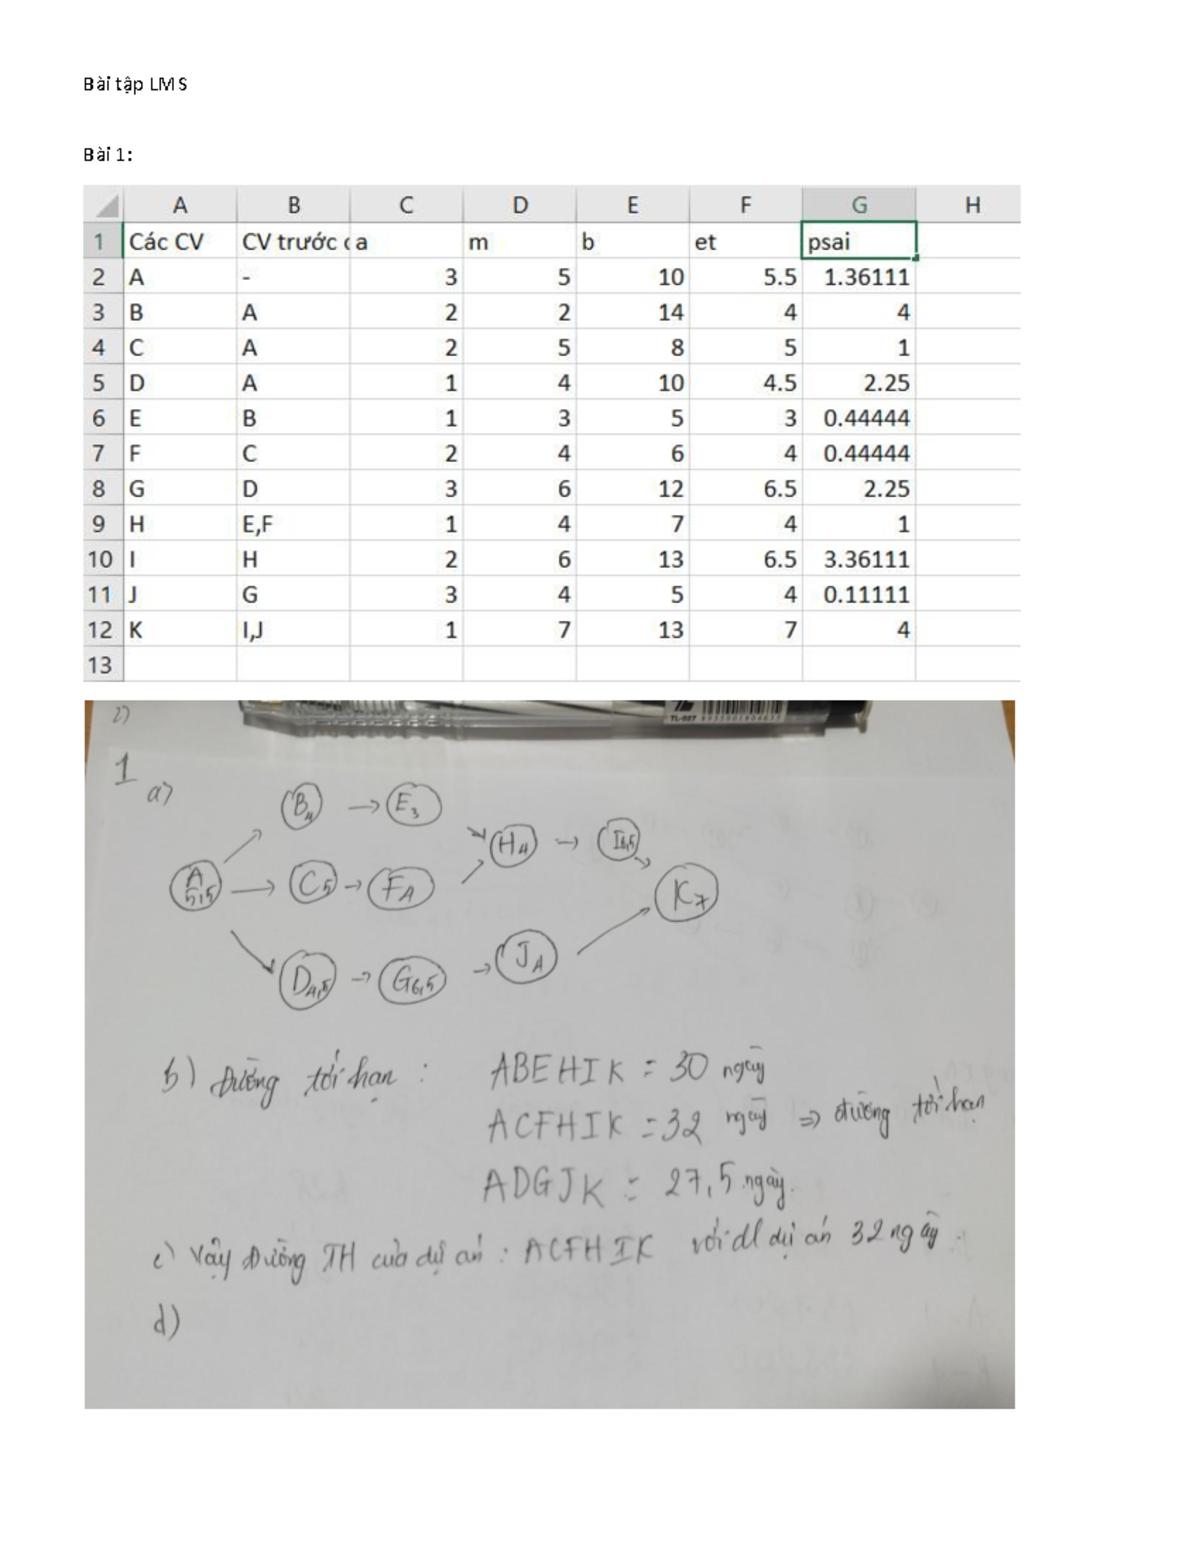 Bài tập LMS
Bài 1:
A B C D E F G H
1 Các CV CV trước c a m b et psai
2 A - 3 5 10 5.5 1.36111
3 B A 2 2 14 4 4
4 C A 2 5 8 5 1
5 D A 1 4 10 4.5 2.25
6 E B 1 3 5 3 0.44444
7 F C 2 4 6 4 0.44444
8 G D 3 6 12 6.5 2.25
9 H E,F 1 4 7 4 1
10 I H 2 6 13 6.5 3.36111
11 J G 3 4 5 4 0.11111
12 K I,J 1 7 13 7 4
13
2)
TL-027
1 a)
B4 → E3
A 5,5 → C5 → F4
H4 → I6,5
K7
D4,5 → G6,5 → J4
b) Đường tới hạn : ABEHIK = 30 ngày
ACFHIK = 32 ngày ⇒ đường tới hạn
ADGJK = 27,5 ngày.
c) Vậy Đường TH của dự án : ACFHIK với dl dự án 32 ngày.
d)